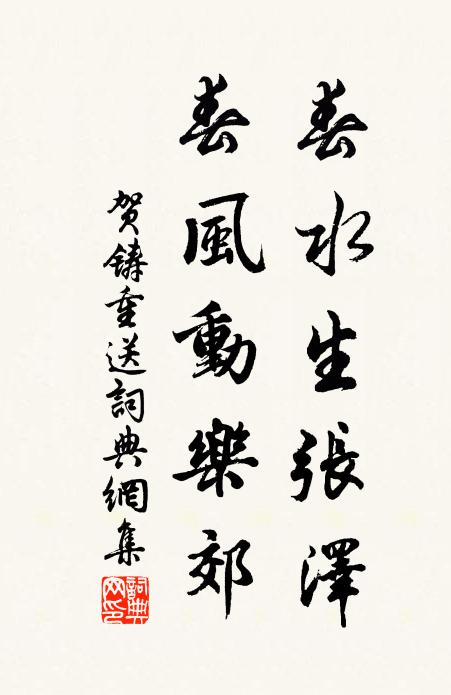 春水生張澤
春風動樂郊
贺鑄重送詞典網集
詞典网印